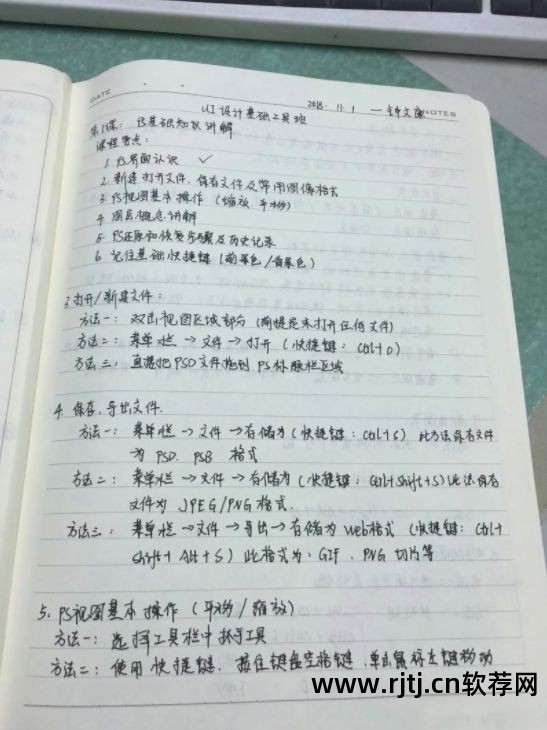 DATE
NOTES
UI设计基础工具班 2018. 11. 1
第1课: PS基础知识讲解
课程要点:
1. PS界面认识 ✓
2. 新建打开文件, 保存文件及常用图像格式
3. PS视图基本操作 (缩放.平移)
4. 图层概念讲解
5. PS还原和恢复步骤及历史记录
6. 记住基础快捷键 (前景色/背景色)
3. 打开/新建文件:
方法一: 双击视图区域部分 (前提是未打开任何文件)
方法二: 菜单栏 → 文件 → 打开 (快捷键: Ctrl+O)
方法三: 直接把PSD文件拖到 PS标题栏区域
4. 保存.导出文件.
方法一: 菜单栏 → 文件 → 存储为 (快捷键: Ctrl+S) 此方法保存文件
为 PSD. PSB 格式
方法二: 菜单栏 → 文件 → 存储为 (快捷键: Ctrl+Shift+S) 此法保存
文件为 JPEG/PNG格式.
方法三: 菜单栏 → 文件 → 导出 → 存储为Web格式 (快捷键: Ctrl+
Shift+Alt+S) 此格式为: GIF. PNG 切片等
5. PS视图基本操作 (平移/缩放)
方法一: 选择工具栏中抓手工具
方法二: 使用快捷键. 按住键盘空格键, 单击鼠标左键移动
www.rjtj.cn软荐网